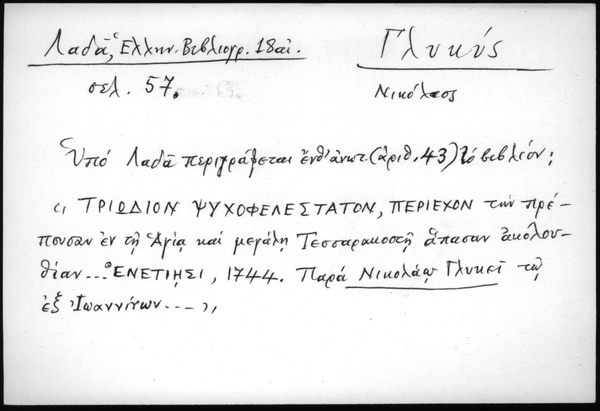 Λαδᾶ, Ἑλλην. Βιβλιογρ. 18αἰ.
σελ. 57.
Γλυκύς
Νικόλαος
Ὑπό Λαδᾶ περιγράφεται ἔνθ' ἀνωτ. (ἀριθ. 43) τό βιβλίον:
« ΤΡΙΩΔΙΟΝ ΨΥΧΟΦΕΛΕΣΤΑΤΟΝ, ΠΕΡΙΕΧΟΝ τήν πρέ-
πουσαν ἐν τῇ Ἁγίᾳ καί μεγάλῃ Τεσσαρακοστῇ ἅπασαν ἀκολου-
θίαν... ἘΝΕΤΙΗΣΙ, 1744. Παρά Νικολάῳ Γλυκεῖ τῷ
ἐξ Ἰωαννίνων... »